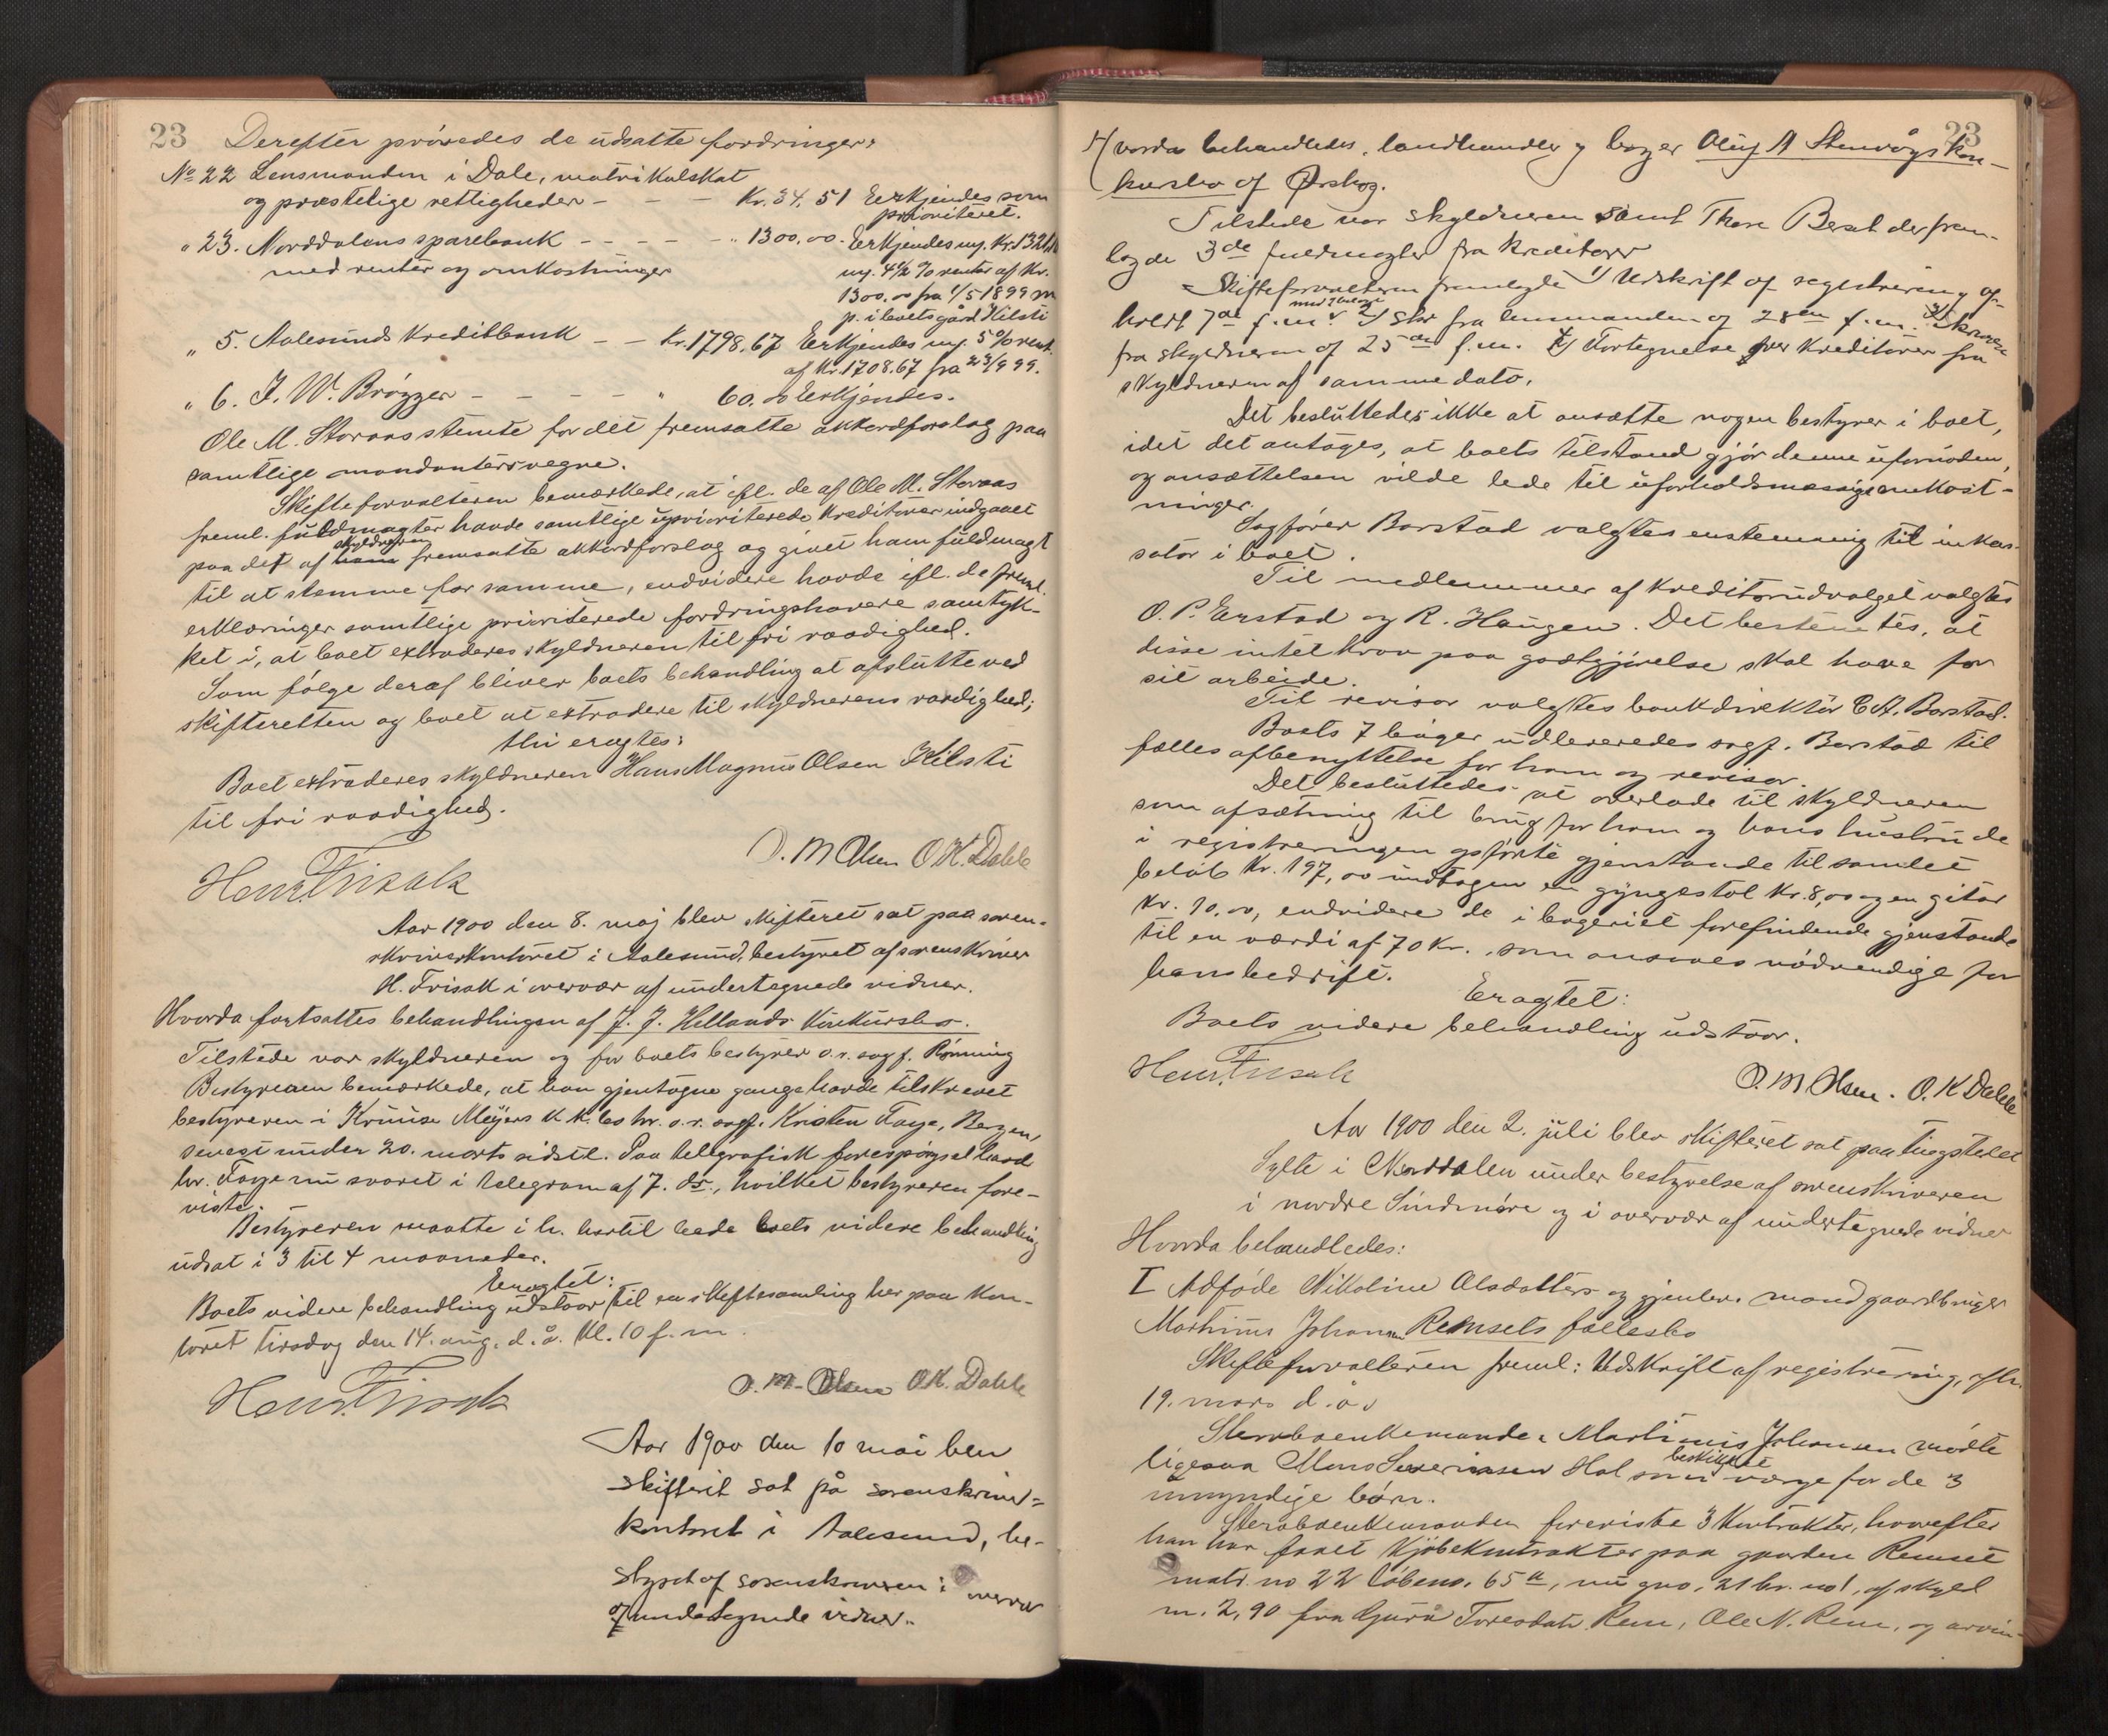 23 Derefter prövedes de udsatte fordringer:
No 22 Lensmanden i Dale, matrikulskat
og præstelige rettigheder - - - Kr. 34,51 Erkjendes som
prioriteret.
" 23. Norddalens sparebank - - - - - " 1300,00. Erkjendes m.
med renter og omkostninger
m. 4½ % renter af Kr.
1300,00 fra 1/5 1899 m
p. i boets gård Kilsti
" 5. Aalesunds Kreditbank - - Kr. 1798,67 Erkjendes m. 5% rent.
af Kr. 1708.67 fra 23/9 99.
" 6. J. W. Brøgger - - - - " 60,00 Erkjendes.
Ole M. Storaas stemte for det fremsatte akkordforslag paa
samtlige mandanters vegne.
Skifteforvalteren bemærkede, at ifl. de af Ole M. Storaas
freml. fuldmagter havde samtlige uprioriterede kreditorer indgaaet
paa det af skyldneren fremsatte akkordforslag og givet ham fuldmagt
til at stemme for samme, endvidere havde ifl. de freml.
erklæringer samtlige prioriterede fordringshavere samtyk-
ket i, at boet extraderes skyldneren til fri raadighed.
Som følge deraf bliver boets behandling at afslutte ved
skifteretten og boet at extradere til skyldnerens raadighed;
thi eragtes:
Boet extraderes skyldneren Hans Magnus Olsen Kilsti
til fri raadighed.
O. M Olsen O. K. Dahle
Henr. Frisak
Aar 1900 den 8. maj blev skifteret sat paa soren-
skriverkontoret i Aalesund, bestyret af sorenskriver
H. Frisak i overvær af undertegnede vidner.
Hvorda fortsattes behandlingen af J. J. Hellands Konkursbo.
Tilstede var skyldneren og for boets bestyrer o.r. sagf. Rönning
Bestyreren bemærkede, at han gjentagne gange havde tilskrevet
bestyreren i Kruuse Meyers k.k. bo hr. o.r. sagf. Kristen Faye, Bergen,
senest under 20. marts sidstl. Paa telegrafisk forespørgsel havd
hr. Faye nu svaret i telegram af 7. ds., hvilket bestyreren fore-
viste.
Bestyreren maatte i h. hertil bede boets videre behandling
udsat i 3 til 4 maaneder.
Eragtet:
Boets videre behandling udstaar til en skiftesamling her paa kon-
toret tirsdag den 14. aug. d. å. kl. 10 f. m.
O. M. Olsen O.K. Dahle
Henr. Frisak
Aar 1900 den 10 mai blev
skifterit sat på sorenskriver=
kontoret i Aalesund, be-
styret af sorenskriveren i overvær
af undertegnede vidner.
23
Hvorda behandledes, landhandler og bager Oluf A Stenvågs kon-
kursbo af Ørskog.
Tilstede var skyldneren samt Thore Berset der frem-
lagde 3de fuldmagter fra kreditorer
Skifteforvalteren fremlagde 1) Udskrift af registrering af-
holdt 7de f. m. med 2 bilage 2) Skr fra lensmanden af 28en f. m. 3) Skrivere
fra skyldneren af 25de f. m. 4) Fortegnelse over kreditorer fra
skyldneren af samme dato.
Det besluttedes ikke at ansætte nogen bestyrer i boet,
idet det antages, at boets tilstand gjør denne ufornøden,
og ansættelsen vilde lede til uforholdsmæssige omkost-
ninger.
Sagfører Barstad valgtes enstemmig til inkas-
sator i boet.
Til medlemmer af kreditorudvalget valgtes
O. P. Erstad og R. Haugen. Det bestemtes, at
disse intet krav paa godtgjørelse skal have for
sit arbeide.
Til revisor valgtes bankdirektør C A. Barstad.
Boets 7 bøger udleveredes sagf. Barstad til
fælles afbenyttelse for ham og revisor.
Det besluttedes at overlade til skyldneren
som afsætning til brug for ham og hans hustru de
i registreringen opførte gjenstande til samlet
beløb Kr. 197,00 undtagen en gyngestol Kr. 8,00 og en gitar
Kr. 10.00, endvidere de i bageriet forefindende gjenstande
til en værdi af 70 Kr., som ansaaes nødvendige for
hans bedrift.
Eragtet:
Boets videre behandling udstaar.
Henr. Frisak
O. M Olsen. O. K Dahle
Aar 1900 den 2. juli blev skifteret sat paa tingstedet
Sylte i Norddalen under bestyrelse af sorenskriveren
i nordre Søndmøre og i overvær af undertegnede vidner
Hvorda behandledes:
I Adføde Nikoline Olsdatters og gjenlev. mand gaardbruger
Martinus Johansen Remsets fællesbo
Skifteforvalteren freml: Udskrift af registrering, afh.
19. mars d. å.
Stervboenkemanden Martinus Johansen mødte
ligesaa Mons Severinsen Hol som beskikket værge for de 3
umyndige børn.
Stervboenkemanden foreviste 3 kontrakter, hvorefter
han har faaet kjøbekontrakter paa gaarden Remset
matr. no 22 løbeno. 65 a, nu gno. 21 br. no 1, af skyld
m. 2,90 fra Guru Toresdatr. Rem, Ole N. Rem, og arvin-